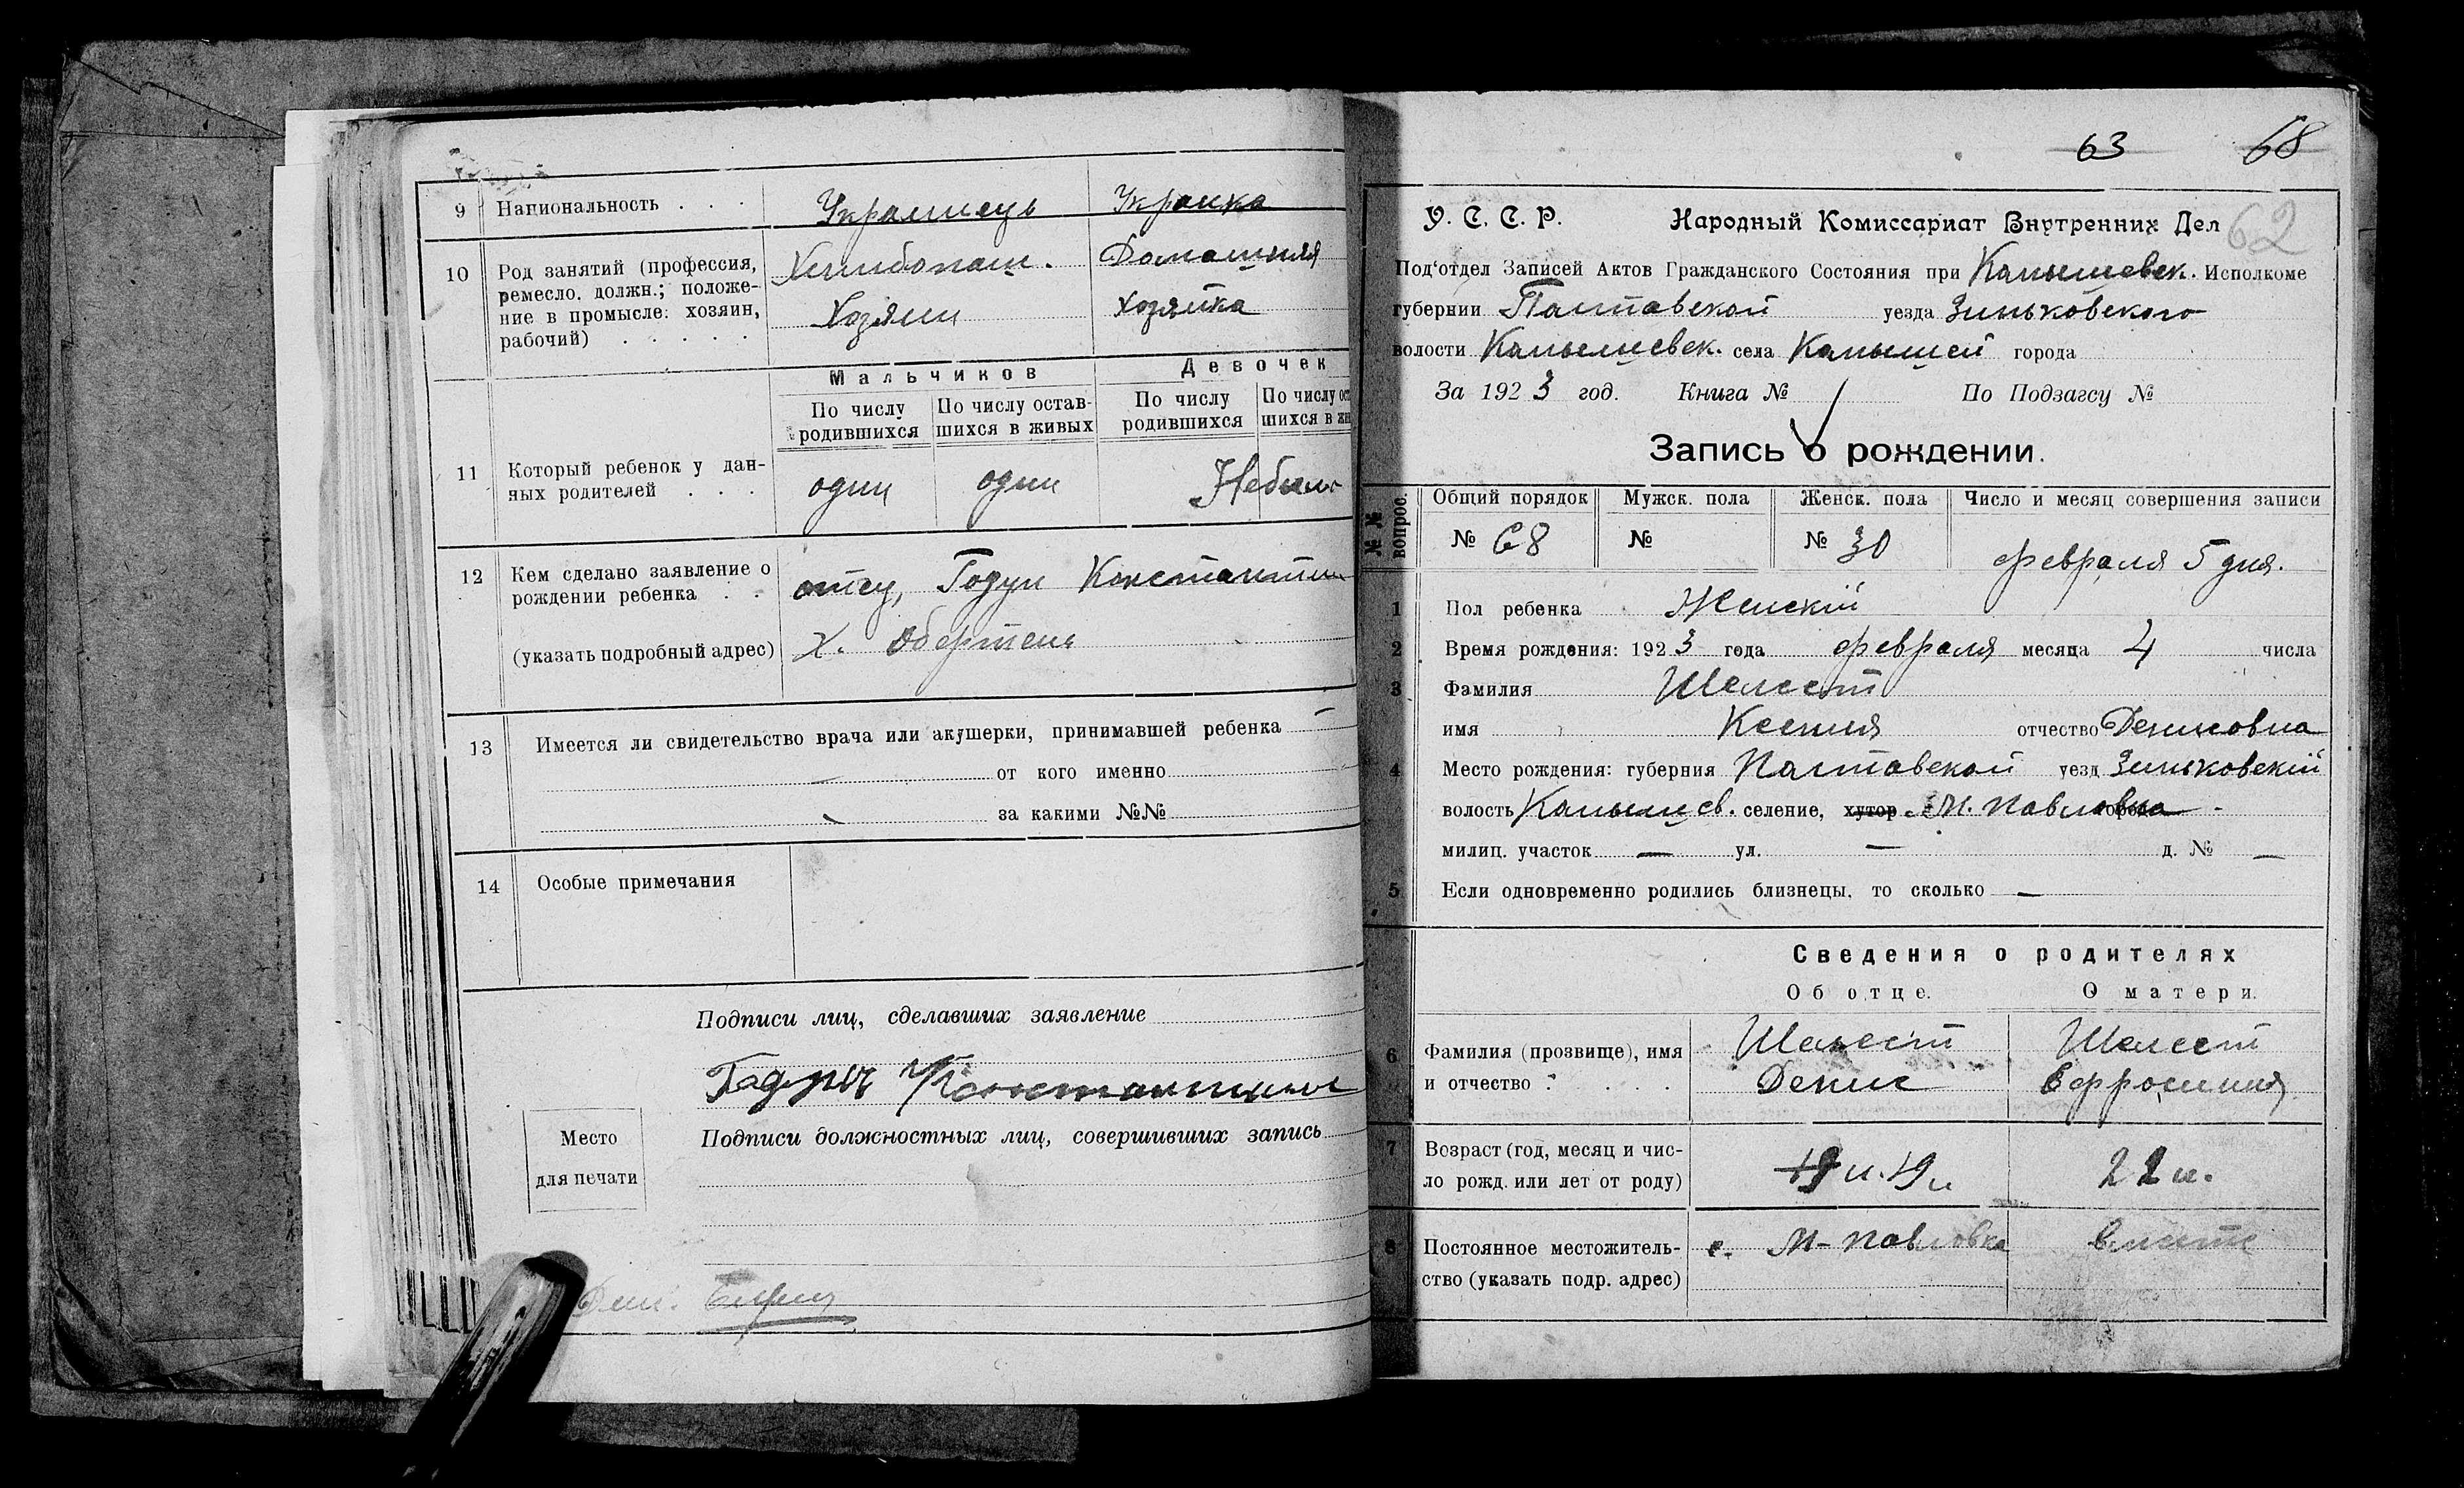 9 Национальность . . . Украинець Украинка
10 Род занятий (профессия, ремесло, должн.; положение в промысле: хозяин, рабочий) . . . . . .
Хлибопаш. Домашняя
Хозяин Хозяйка
Мальчиков Девочек
По числу родившихся По числу оставшихся в живых По числу родившихся По числу ос шихся в жи
11 Который ребенок у данных родителей . . . один один Небыло
12 Кем сделано заявление о рождении ребенка . . отец, Годун Константин
(указать подробный адрес) х. Обертень
13 Имеется ли свидетельство врача или акушерки, принимавшей ребенка —
— от кого именно
— за какими №№
14 Особые примечания
Подписи лиц, сделавших заявление
Годунъ Константинъ
Место
для печати
Подписи должностных лиц, совершивших запись
63 68
62
У. С. С. Р. Народный Комиссариат Внутренних Дел
Под‘отдел Записей Актов Гражданского Состояния при Капышевск. Исполкоме
губернии Палтавской уезда Зиньковского
волости Капышевск. села Капышей города
За 1923 год. Книга № По Подзагсу №
Запись о рождении.
№№ вопрос. Общий порядок Мужск. пола Женск. пола Число и месяц совершения записи
№ 68 № № 30 февраля 5 дня.
1 Пол ребенка Женскій
2 Время рождения: 1923 года февраля месяца 4 числа
3 Фамилия Шелест
имя Ксения отчество Денисовна
4 Место рождения: губерния Палтавской уезд Зиньковскій
волость Капышев. селение, хутор М. Павловка города -
милиц. участок — ул. — д. № —
5 Если одновременно родились близнецы, то сколько —
Сведения о родителях
Об отце. О матери.
6 Фамилия (прозвище), имя и отчество . . . .
Шелест Шелест
Денис Ефросиния
7 Возраст (год, месяц и число рожд. или лет от роду) 19 л. 19 л 22 л.
8 Постоянное местожительство (указать подр. адрес) с. М-Павловка вместе